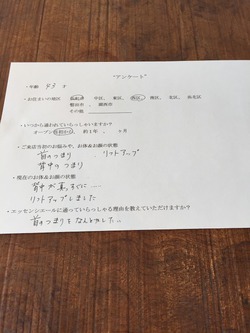 "アンケート"
・年齢 43 才
・お住まいの地区 中区、東区、西区、南区、北区、
磐田市 、 湖西市
その他
・いつから通われていらっしゃいますか？
オープン当初から 約1年 、 ヶ月
・ご来店当初のお悩みや、お体&お顔の状態
首のつまり リフトアップ
背中のつまり
・現在のお体&お顔の状態
背中が
リフトアップしました
・エッセンシエールに通っていらっしゃる理由を教えていただけますか？
首のつまりをなんとかしたい